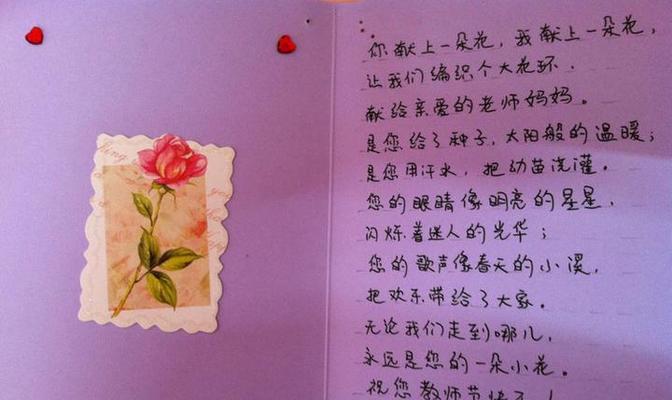 你献上一朵花，我献上一朵花，
让我们编织个大花环．
献给亲爱的老师妈妈。
是您给了种子，太阳般的温暖；
是您用汗水，把幼苗浇灌。
您的眼睛像明亮的星星，
闪烁着迷人的光华；
您的歌声像春天的小溪，
把欢乐带给了大家。
无论我们走到哪儿，
永远是您的一朵小花。
祝您教师节快乐！